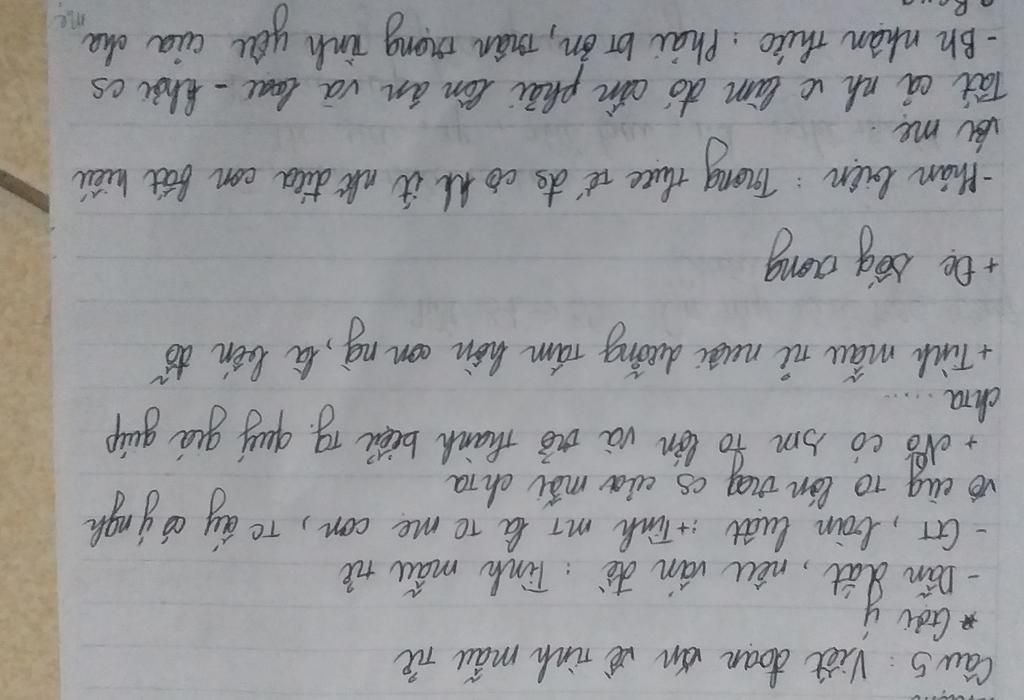 Câu 5: Viết đoạn văn về tình mẫu tử
* Gợi ý
- Dẫn dắt, nêu vấn đề: Tình mẫu tử
- GT, bàn luật: + Tình MT là TC mẹ con, TC ấy có ý ngh
vô cùg to lớn trog cs của mỗi chta
+ Nó có sm to lớn và trở thành biểu tg. quý giá giúp
chta .....
+ Tình mẫu tử nuôi dưỡng tâm hồn con ng, là bến đỗ
+ Đc sốg trong
- Phản biện: Trong thực tế đs có kh ít nh đứa con bất hiếu
với mẹ.
Tất cả nh v làm đó cần phải lên án và loại - khỏi cs
- Bh nhận thức: Phải bt ơn, trân trọng tình yêu của cha
mẹ